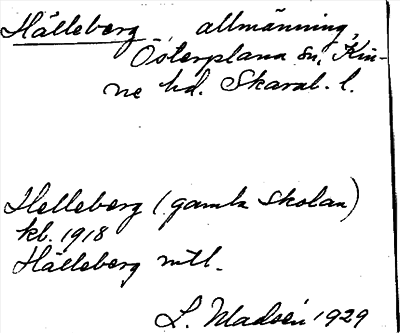 Hälleberg, allmänning,
Österplana sn, Kin-
ne hd. Skarab. l.
Helleberg (gamla skolan)
kb. 1918
Hälleberg mtl.
L. Modéer 1929